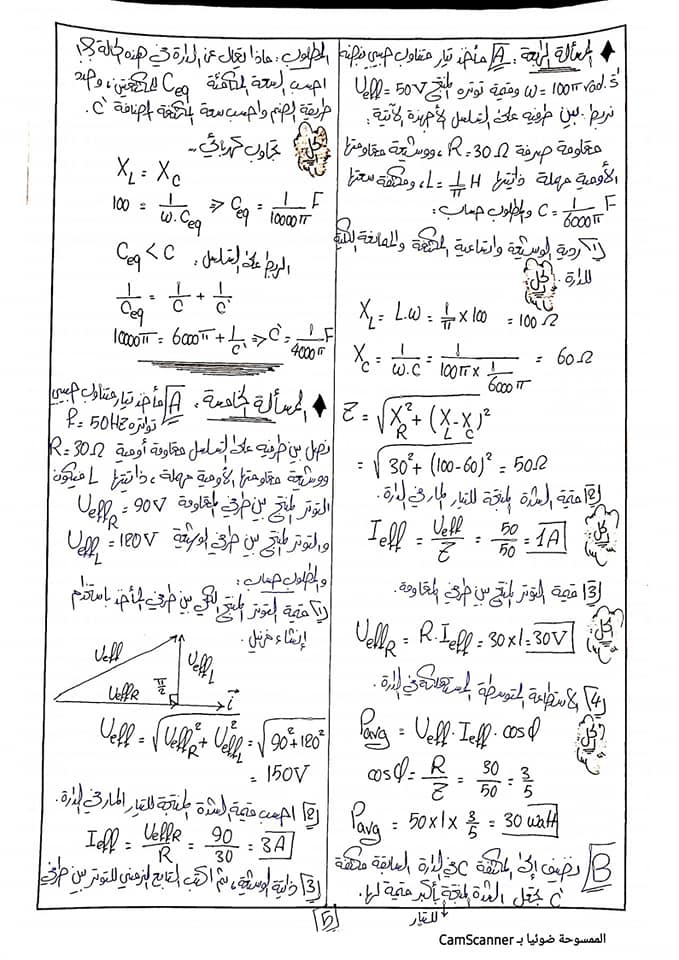 ♦ المسألة الرابعة: A مأخذ تيار متناوب جيبي نبضه
ω = 100π rad.s⁻¹ وقيمة توتره المنتج Ueff = 50V
نربط بين طرفيه على التسلسل الأجهزة الآتية:
مقاومة صرفة R = 30Ω، ووشيعة مقاومتها
الأومية مهملة ذاتيتها L = 1/π H، ومكثفة سعتها
C = 1/6000π F والمطلوب حساب:
1) ردية الوشيعة واتساعية المكثفة والممانعة الكلية
للدارة.
الحل
X_L = L.ω = 1/π × 100 = 100Ω
X_C = 1/ω.C = 1/(100π × 1/6000π) = 60Ω
Z = √(X_R² + (X_L - X_C)²)
= √(30² + (100-60)²) = 50Ω
2) قيمة الشدة المنتجة للتيار المار في الدارة.
الحل
Ieff = Ueff/Z = 50/50 = 1A
3) قيمة التوتر المنتج بين طرفي المقاومة.
الحل
Ueff_R = R.Ieff = 30×1 = 30V
4) الاستطاعة المتوسطة المستهلكة في الدارة.
الحل
Pavg = Ueff.Ieff.cosφ
cosφ = R/Z = 30/50 = 3/5
Pavg = 50×1×3/5 = 30 watt
B نضيف إلى المكثفة C في الدارة السابقة مكثفة
C' تجعل الشدة المنتجة بأكبر قيمة لها.
للتيار
المطلوب: ماذا يقال عن الدارة في هذه الحالة؟!
احسب السعة المكافئة Ceq للمكثفتين، وحدد
طريقة الضم واحسب سعة المكثفة المضافة C'.
الحل
تجاوب كهربائي..
X_L = X_C
100 = 1/ω.Ceq ⇒ Ceq = 1/10000π F
Ceq < C الربط على التسلسل:
1/Ceq = 1/C + 1/C'
10000π = 6000π + 1/C' ⇒ C' = 1/4000π F
♦ المسألة الخامسة: A مأخذ تيار متناوب جيبي
تواتره f = 50Hz
نصل بين طرفيه على التسلسل مقاومة أومية R = 30Ω
ووشيعة مقاومتها الأومية مهملة، ذاتيتها L فيكون
التوتر المنتج بين طرفي المقاومة Ueff_R = 90V
والتوتر المنتج بين طرفي الوشيعة Ueff_L = 120V
والمطلوب حساب:
1) قيمة التوتر المنتج الكلي بين طرفي المأخذ باستخدام
إنشاء فرينل.
Ueff
Ueff_L
Ueff_R
π/2
i
Ueff = √(Ueff_R² + Ueff_L²) = √(90² + 120²)
= 150V
2) احسب قيمة الشدة المنتجة للتيار المار في الدارة.
Ieff = Ueff_R/R = 90/30 = 3A
3) ذاتية الوشيعة، ثم اكتب التابع الزمني للتوتر بين طرفي
5
الممسوحة ضوئيا بـ CamScanner